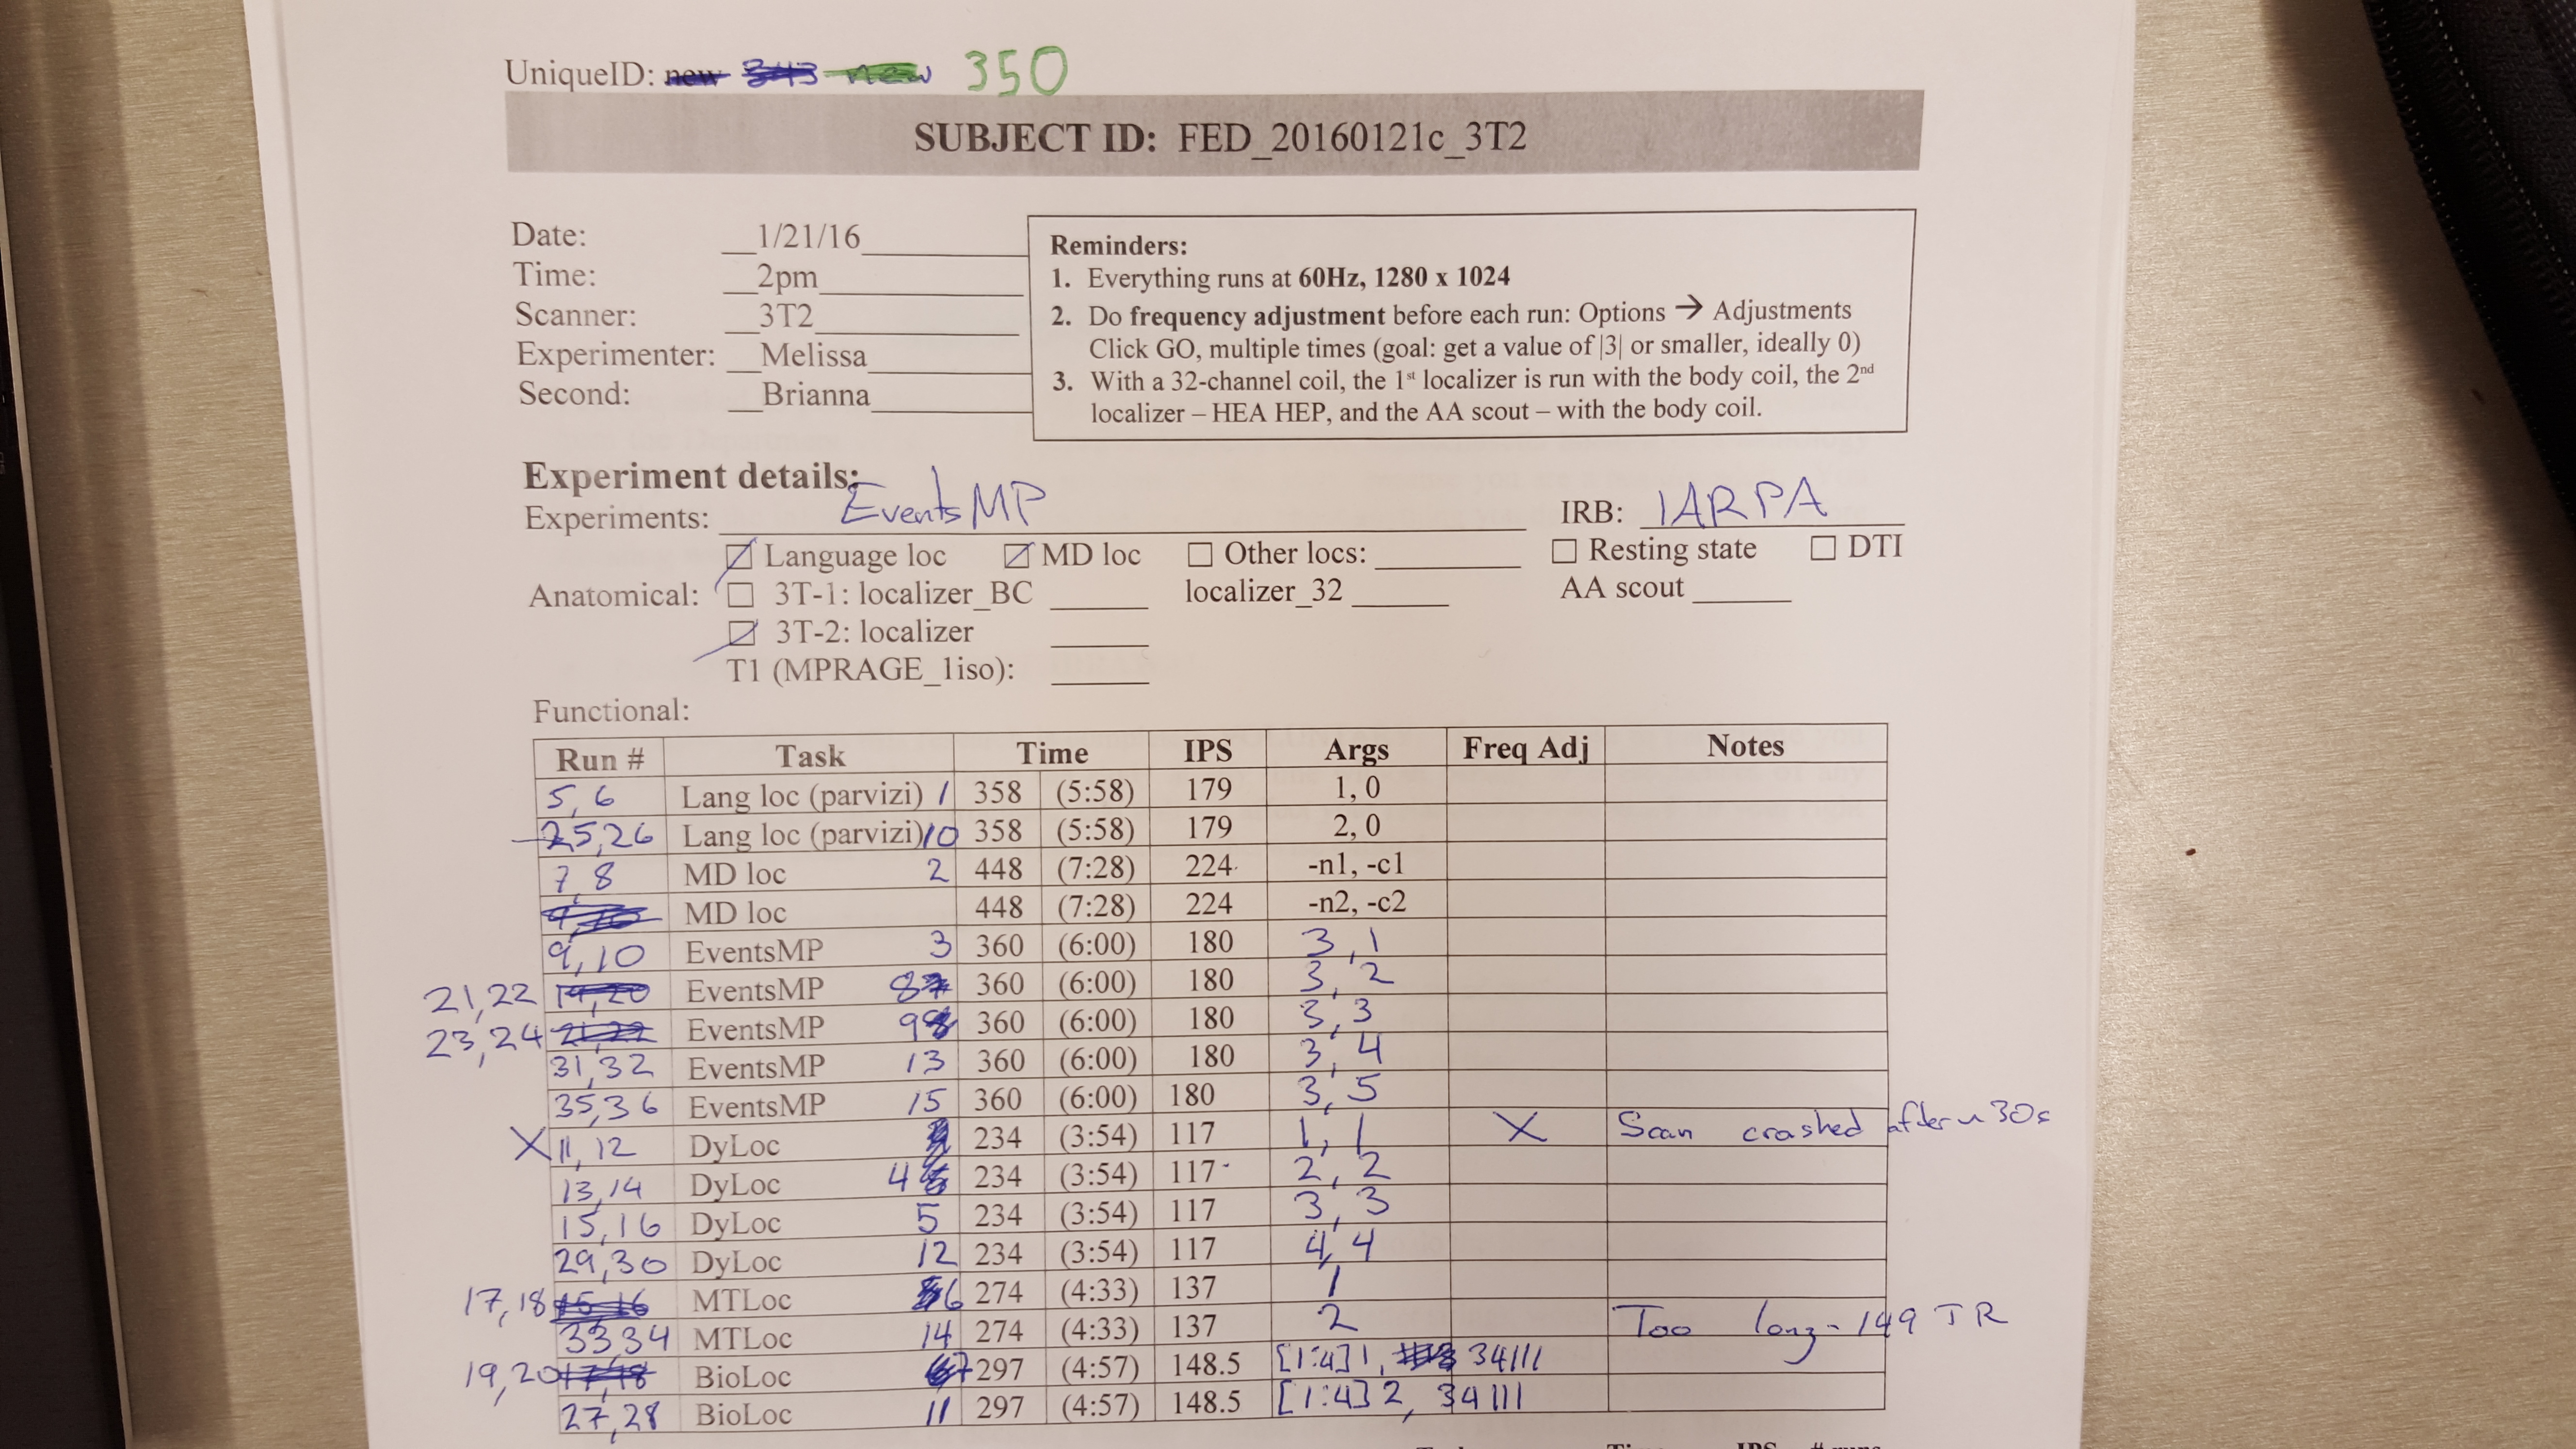 UniqueID: new 343 new 350
SUBJECT ID: FED_20160121c_3T2
Date: 1/21/16
Time: 2pm
Scanner: 3T2
Experimenter: Melissa
Second: Brianna
Reminders:
1. Everything runs at 60Hz, 1280 x 1024
2. Do frequency adjustment before each run: Options → Adjustments
Click GO, multiple times (goal: get a value of |3| or smaller, ideally 0)
3. With a 32-channel coil, the 1st localizer is run with the body coil, the 2nd
localizer – HEA HEP, and the AA scout – with the body coil.
Experiment details:
Experiments: EventsMP IRB: IARPA
Language loc MD loc Other locs: Resting state DTI
Anatomical: 3T-1: localizer_BC localizer_32 AA scout
3T-2: localizer
T1 (MPRAGE_1iso):
Functional:
Run # Task Time IPS Args Freq Adj Notes
5, 6 Lang loc (parvizi) 1 358 (5:58) 179 1, 0
25,26 Lang loc (parvizi) 10 358 (5:58) 179 2, 0
7, 8 MD loc 2 448 (7:28) 224 -n1, -c1
9,10 MD loc 448 (7:28) 224 -n2, -c2
9,10 EventsMP 3 360 (6:00) 180 3,1
21,22 19,20 EventsMP 8 360 (6:00) 180 3, 2
23,24 21,22 EventsMP 9 360 (6:00) 180 3,3
31,32 EventsMP 13 360 (6:00) 180 3, 4
35,36 EventsMP 15 360 (6:00) 180 3, 5
X 11, 12 DyLoc 234 (3:54) 117 1, 1 X Scan crashed after ~30s
13,14 DyLoc 4 234 (3:54) 117 2, 2
15,16 DyLoc 5 234 (3:54) 117 3, 3
29,30 DyLoc 12 234 (3:54) 117 4, 4
17,18 15,16 MTLoc 6 274 (4:33) 137 1
33,34 MTLoc 14 274 (4:33) 137 2 Too long - 149 TR
19,20 17,18 BioLoc 7 297 (4:57) 148.5 [1:4] 1, 34111
27,28 BioLoc 11 297 (4:57) 148.5 [1:4] 2, 34111